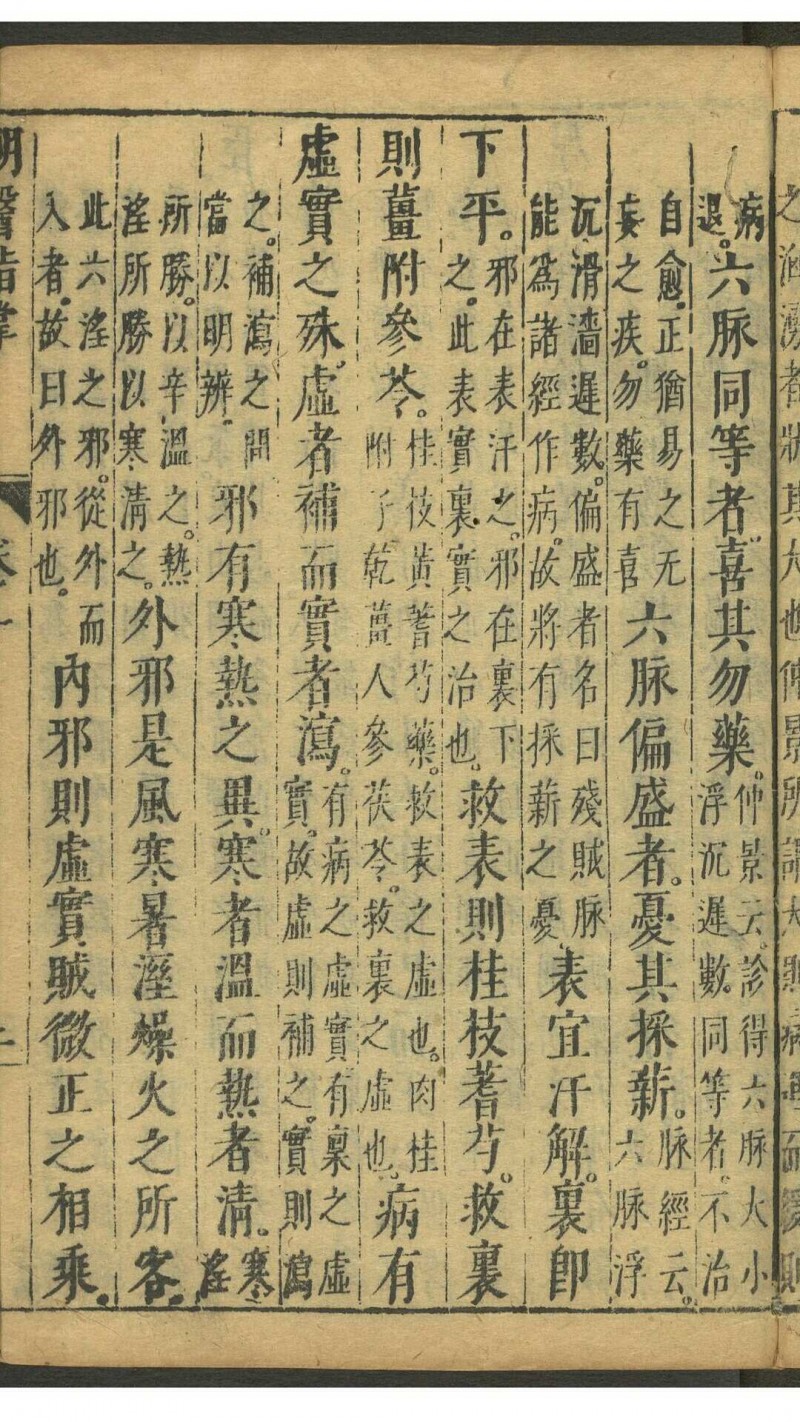 病退。六脉同等者喜其勿藥。仲景云。診得六脉大小浮沉遲數。同等者。不治
自愈。正猶易之无妄之疾。勿藥有喜六脉偏盛者。憂其採薪。脉經云。六脉浮
沉滑濇遲數。偏盛者名曰殘賊脉能爲諸經作病。故將有採薪之憂表宜汗解。裏卽
下平。邪在表汗之。邪在裏下之。此表實裏實之治也。救表則桂枝蓍芍。救裏
則薑附參苓。桂枝黃蓍芍藥。救表之虛也。肉桂附子乾薑人參茯苓。救裏之虛也。病有
虛實之殊。虛者補而實者瀉。有病之虛實有稟之虛實。故虛則補之。實則瀉
之。補瀉之間當以明辨。邪有寒熱之異。寒者溫而熱者清。寒淫
所勝。以辛溫之。熱淫所勝以寒清之。外邪是風寒暑溼燥火之所客。
此六淫之邪。從外而入者。故曰外邪也。內邪則虛實賊微正之相乘。